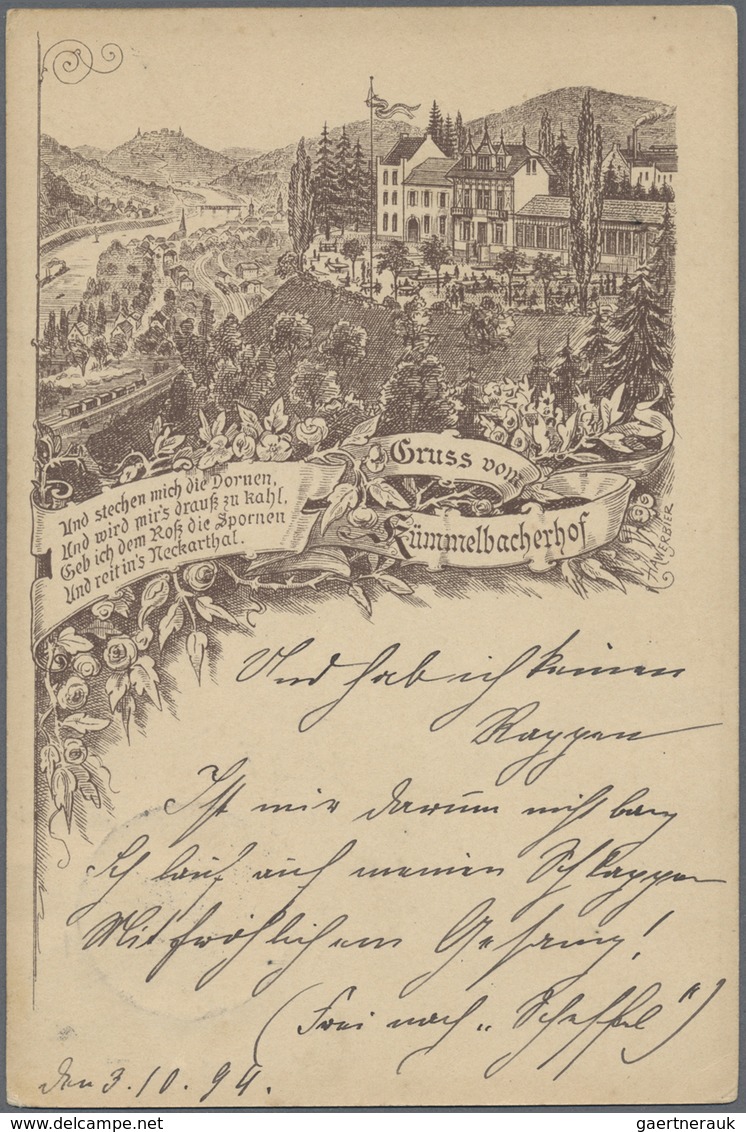 Und stechen mich die Dornen,
Und wird mir's drauß zu kahl,
Geb ich dem Roß die Spornen
Und reit in's Neckarthal.
Gruss vom
Kümmelbacherhof
HAWERBIER
Und hab ich keinen
Rappen
Ist mir darum nicht bang
Ich lauf auf meinen Schlappen
Mit fröhlichem Gesang!
(Frei nach „Scheffel")
den 3. 10. 94.
gaertnerauk